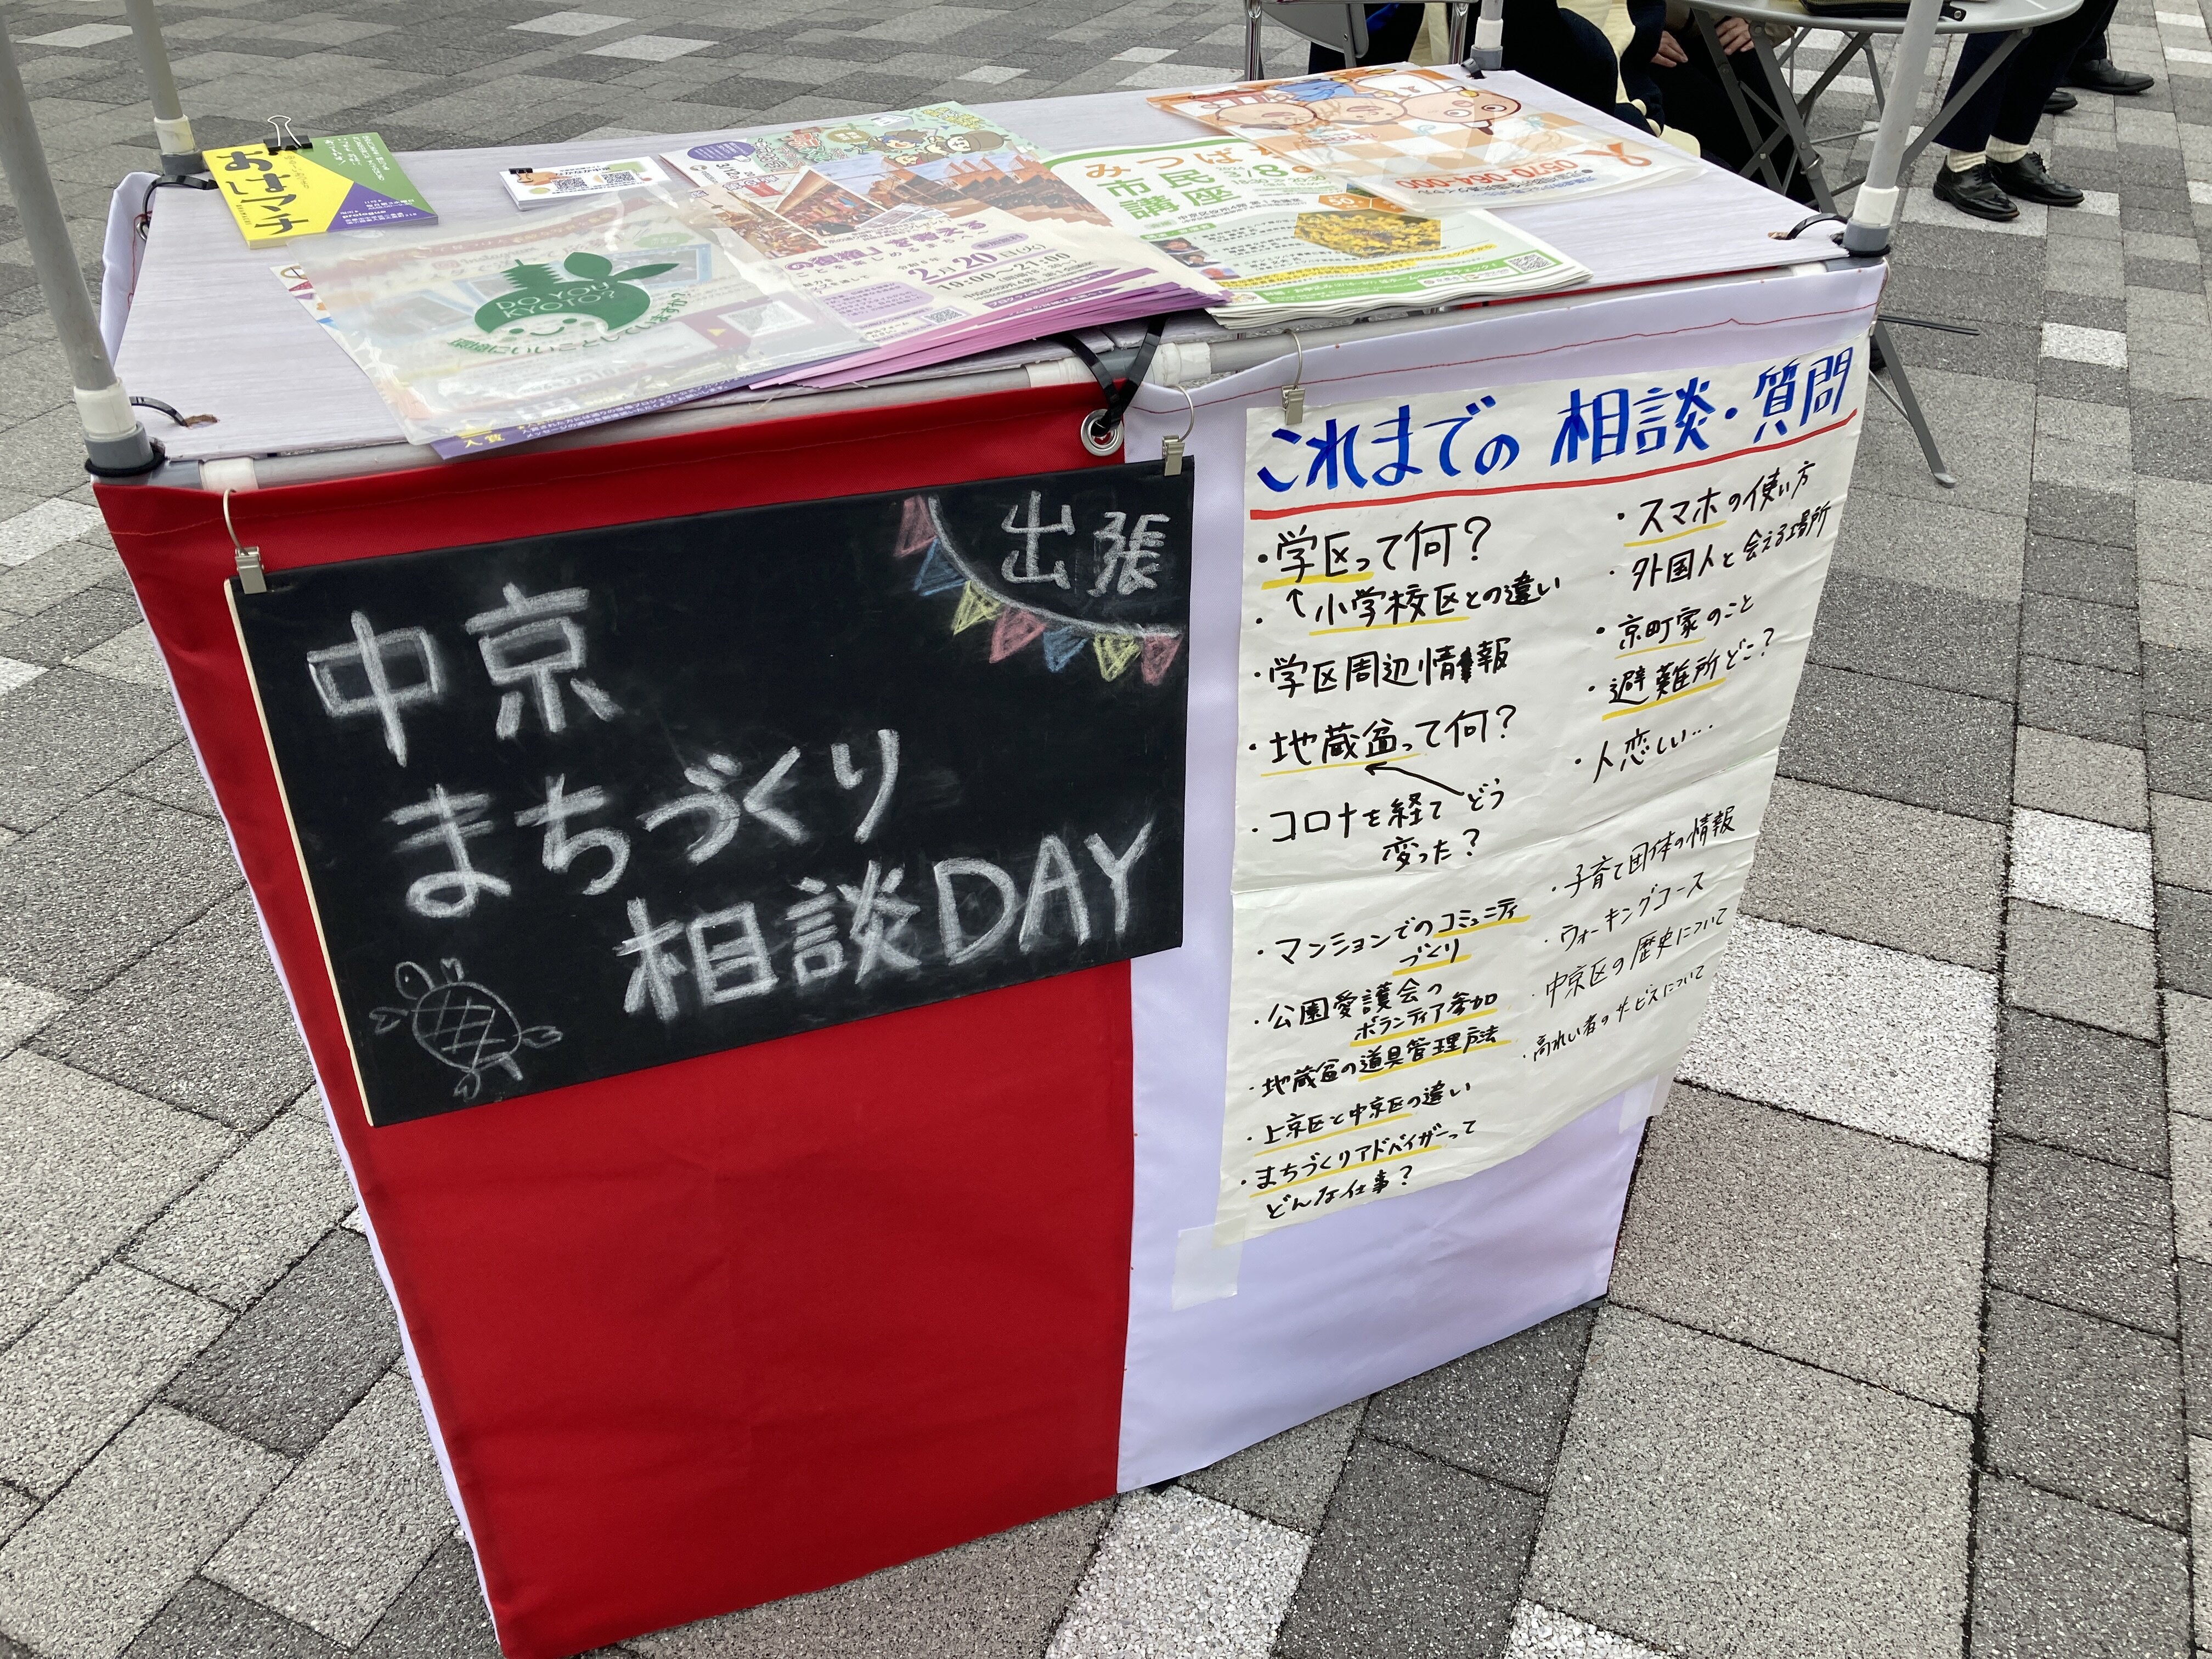 おはマチ
prologue
DO YOU
KYOTO?
環境にいいことしていますか?
入賞
の復籬」を考える
2月20日(火)
19:00~21:00
みつばち
市民
講座
3/8
50
0570-084-000
出張
中京
まちづくり
相談DAY
これまでの 相談・質問
・学区って何?
・↑小学校区との違い
・学区周辺情報
・地蔵盆って何?
・コロナを経て どう
変った?
・マンションでのコミュニティ
づくり
・公園愛護会の
ボランティア参加
・地蔵盆の道具管理方法
・上京区と中京区の違い
・まちづくりアドバイザーって
どんな仕事?
・スマホの使い方
・外国人と会える場所
・京町家のこと
・避難所どこ?
・人恋しい…
・子育て団体の情報
・ウォーキングコース
・中京区の歴史について
・高れい者のサービスについて